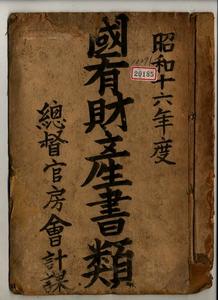 昭和十六年度
國有財產書類
總督官房會計課
20185